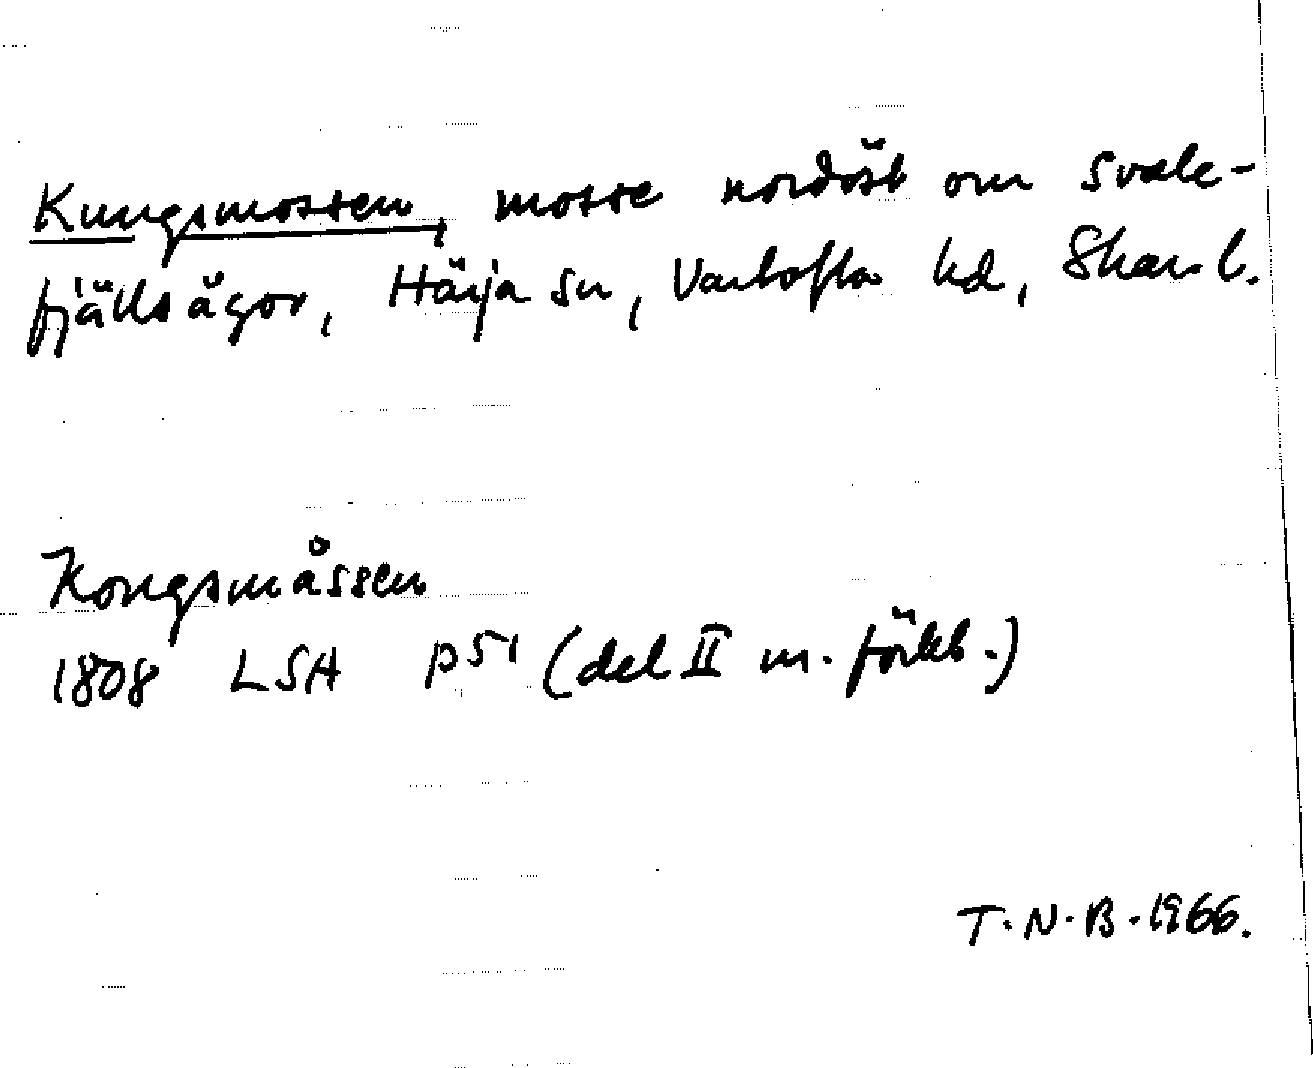 Kungsmossen, mosse nordöst om Svale-
fjällsägor, Härja sn, Vartofta hd, Skar. l.
Kongsmåssen
1808 LSA p51 (del II m. förkl.)
T.N.B. 1966.